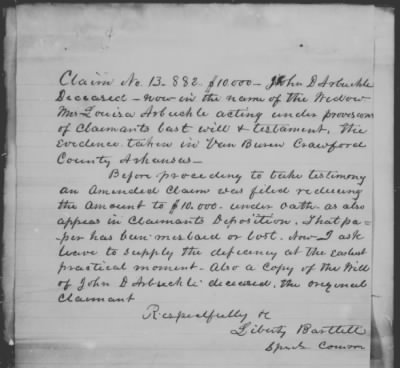 Claim No. 13.882 $10.000 - John D Arbuckle
Deceased - now in the name of the Widow
Mrs Louisa Arbuckle acting under provisions
of Claimants last will & testament, the
evidence taken in Van Buren Crawford
County Arkansas -
Before proceeding to take testimony
an Amended Claim was filed reducing
the Amount to $10.000 - under oath - as also
appears in Claimants Deposition. That pa-
per has been mislaid or lost. Now I ask
leave to supply the deficiency at the earliest
practical moment - Also a Copy of the Will
of John D Arbuckle deceased, the original
Claimant
Respectfully &
Liberty Bartlett
Spcl Comm